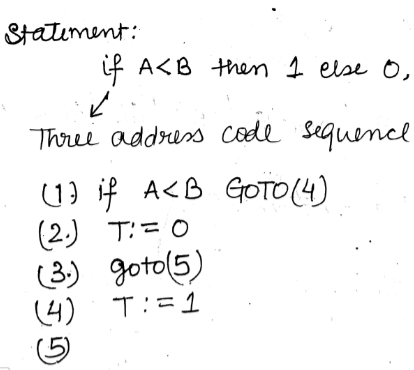 Statement:
if A<B then 1 else 0,
Three address code sequence
(1) if A<B GOTO(4)
(2.) T:= 0
(3.) goto(5)
(4) T:=1
(5)